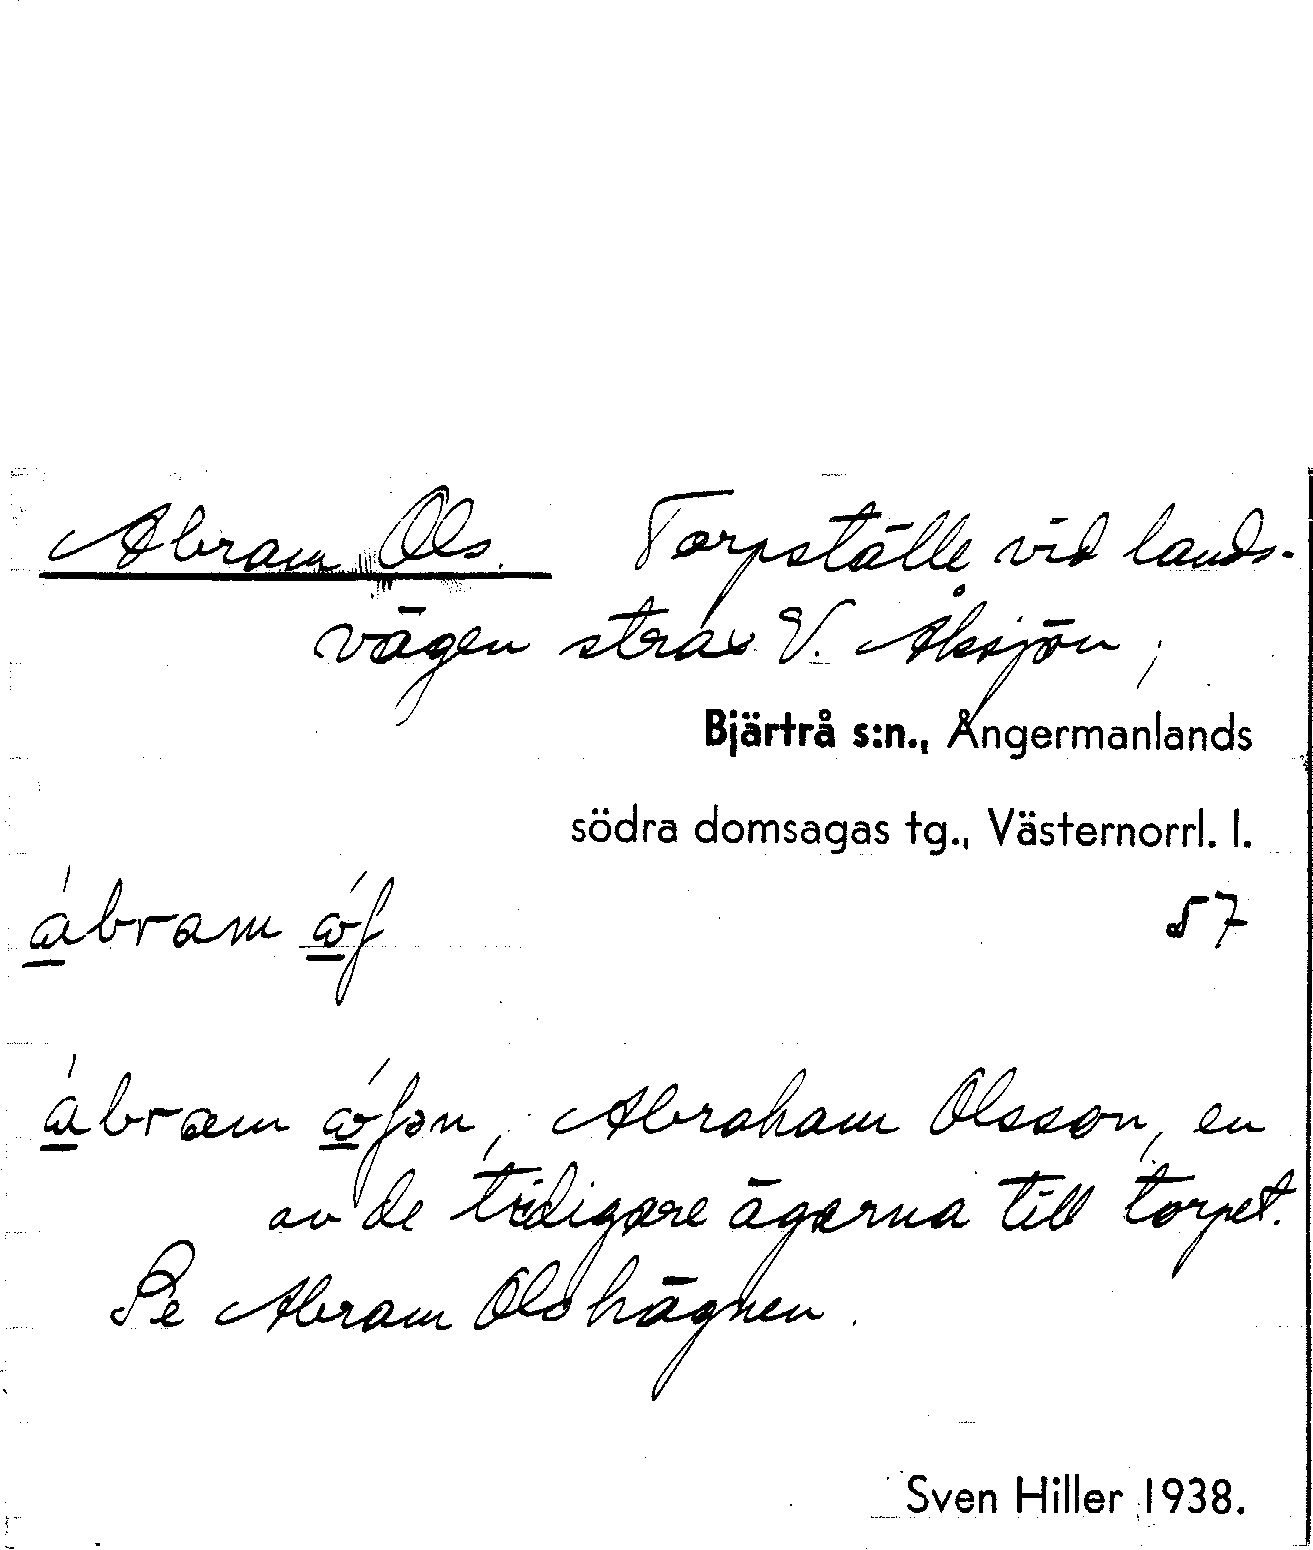 Abram Ols. Torpställe vid lands-
vägen strax V. Åksjön;
Bjärtrå s:n., Ångermanlands
södra domsagas tg., Västernorrl. l.
57
Abraham Olsson, en
av de tidigare ägarna till torpet.
Se Abram Olshägnen.
Sven Hiller 1938.